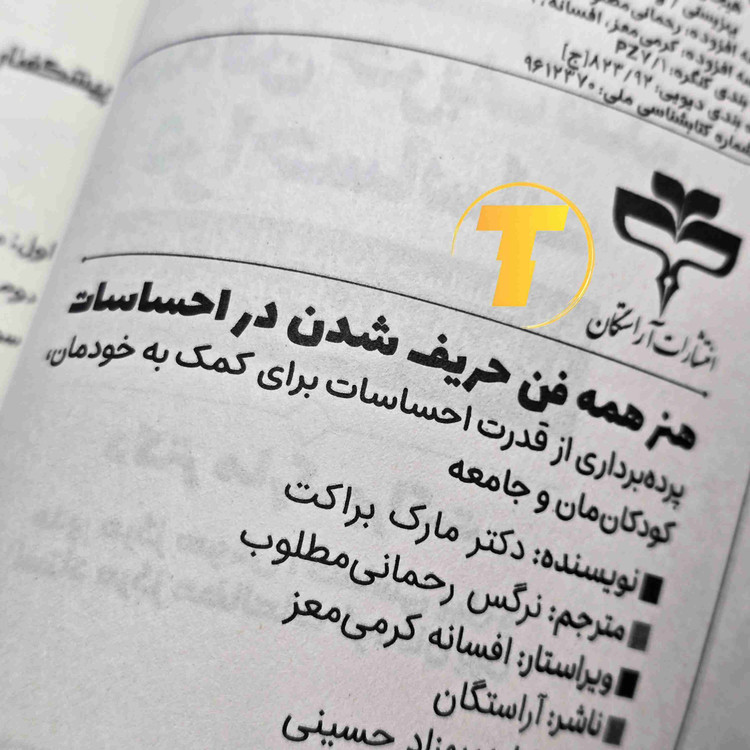 افزوده: رحمانی
افزوده: کرمی‌معز، افسانه،
بندی کنگره: PZ۷/۱
بندی دیویی: ۸۲۳/۹۲[ج]
شماره کتابشناسی ملی: ۹۶۱۲۳۷۰
T
انتشارات آراستگان
هنر همه فن حریف شدن در احساسات
پرده‌برداری از قدرت احساسات برای کمک به خودمان،
کودکان‌مان و جامعه
■ نویسنده: دکتر مارک براکت
■ مترجم: نرگس رحمانی‌مطلوب
■ ویراستار: افسانه کرمی‌معز
■ ناشر: آراستگان
حسینی
اول:
دوم